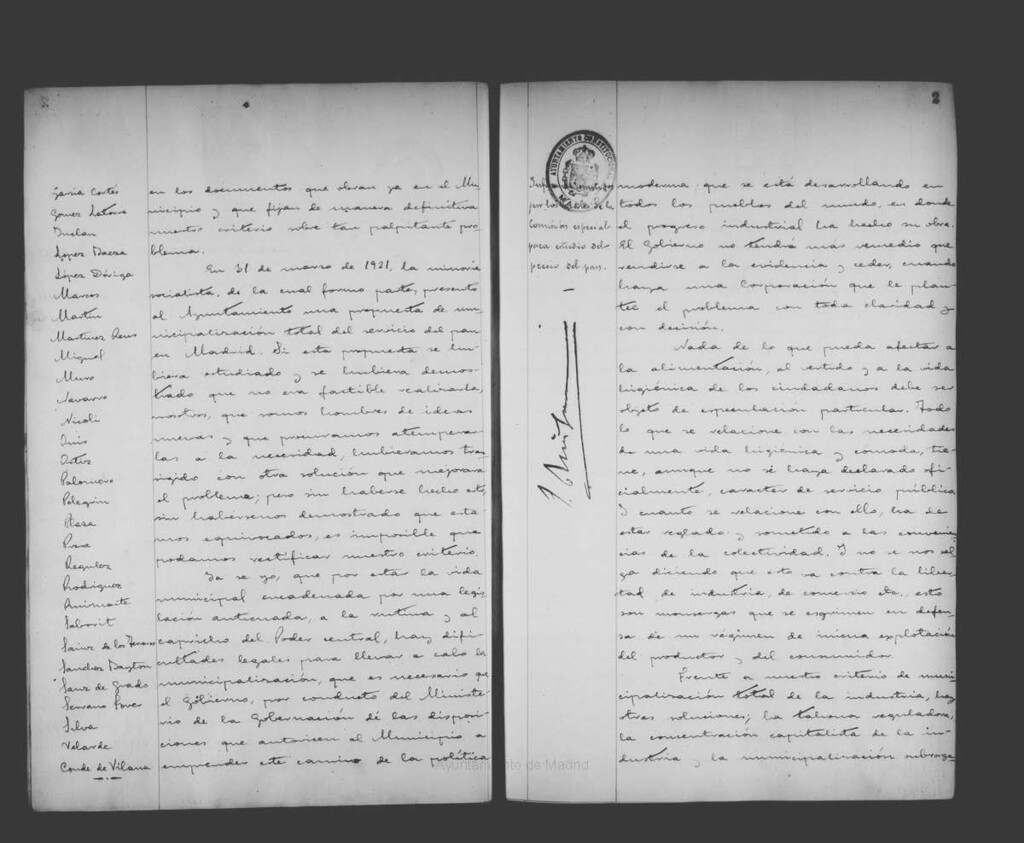 García Cortés
Gómez Latorre
López Baeza
López Dóriga
Marcos
Martín
Martínez Reus
Miguel
Muro
Navarro
Nicoli
Ortiz
Palomero
Pelegrín
Plaza
Regúlez
Rodríguez
Saborit
Sainz de los Terreros
Sánchez Baytón
Sanz de Grado
Serrano Jover
Silva
Velarde
Conde de Vilana
en los documentos que obran ya en el Mu-
nicipio y que fijan de manera definitiva
nuestro criterio sobre tan palpitante pro-
blema.
En 31 de marzo de 1921, la minoria
socialista, de la cual formo parte, presentó
al Ayuntamiento una propuesta de mu-
nicipalización total del servicio del pan
en Madrid. Si esta propuesta se hu-
biera estudiado y se hubiera demos-
trado que no era factible realizarla,
nosotros, que somos hombres de ideas
nuevas y que procuramos atempera-
las a la necesidad, hubieramos tran-
sigido con otra solución que mejorara
el problema; pero sin haberse hecho esto,
sin habérsenos demostrado que esta-
mos equivocados, es imposible que
podamos rectificar nuestro criterio.
Ya se yo, que por estar la vida
municipal encadenada por una legis-
lación anticuada, a la rutina y al
capricho del Poder central, hay difi-
cultades legales para llevar a cabo la
municipalización, que es necesario que
el Gobierno, por conducto del Ministe-
rio de la Gobernación dé las disposi-
ciones que autoricen al Municipio a
emprender este camino de la política
2
AYUNTAMIENTO CONSTITUCIO
por los
Comisión especial
para estudio del
precio del pan.
moderna, que se está desarrollando en
todos los pueblos del mundo, en donde
el progreso industrial ha hecho su obra.
El Gobierno no tendrá más remedio que
rendirse a la evidencia y ceder, cuando
haya una Corporación que le plan-
tee el problema con toda claridad y
con decisión.
Nada de lo que pueda afectar a
la alimentación, al vestido y a la vida
higiénica de los ciudadanos debe ser
objeto de especulación particular. Todo
lo que se relacione con las necesidades
de una vida higiénica y cómoda, tie-
ne, aunque no se haya declarado ofi-
cialmente, caracter de servicio público
Y cuanto se relacione con ello, ha de
estar reglado y sometido a las convenien-
cias de la colectividad. Y no se nos sal-
ga diciendo que esto va contra la liber-
tad de industria, de comercio etc., esto
son monsergas que se esgrimen en defen-
sa de un régimen de inicua explotación
del productor y del consumidor.
Frente a nuestro criterio de muni-
cipalización total de la industria, hay
otras soluciones; la tahona reguladora,
la concentración capitalista de la in-
dustria y la municipalización subroga
Ayuntamiento de Madrid